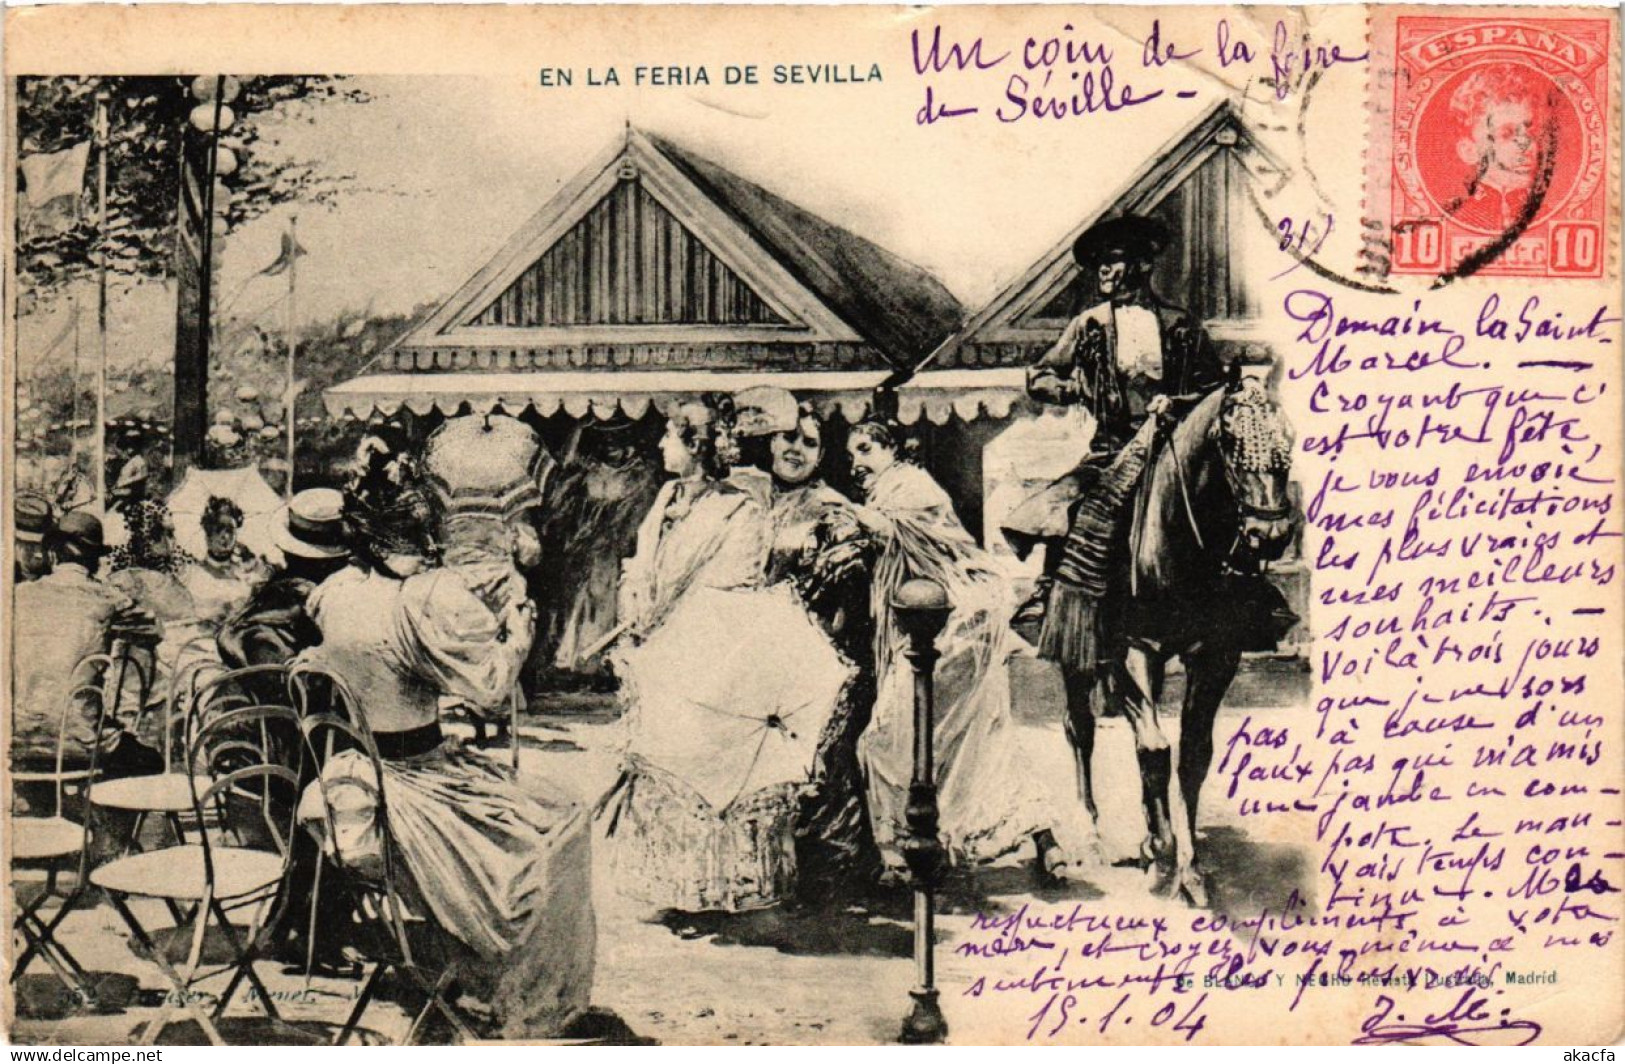 EN LA FERIA DE SEVILLA
Un coin de la foire
de Séville -
ESPAÑA
10 10
31)
Demain la Saint-
Marcel. —
Croyant que c'
est votre fête,
je vous envoie
mes félicitations
les plus vraies et
mes meilleurs
souhaits. -
Voilà trois jours
que je ne sors
pas, à cause d'un
faux pas qui m'a mis
une jambe en com-
pote. Le mau-
vais temps con-
tinue. Mes
respectueux compliments à votre
mère, et croyez vous même à mes
sentiments les plus vrais.
15.1.04 J. M.
552 Hauser y Menet. - Madrid
De BLANCO Y NEGRO Revista Ilustrada, Madrid
akacfa akacfa.com